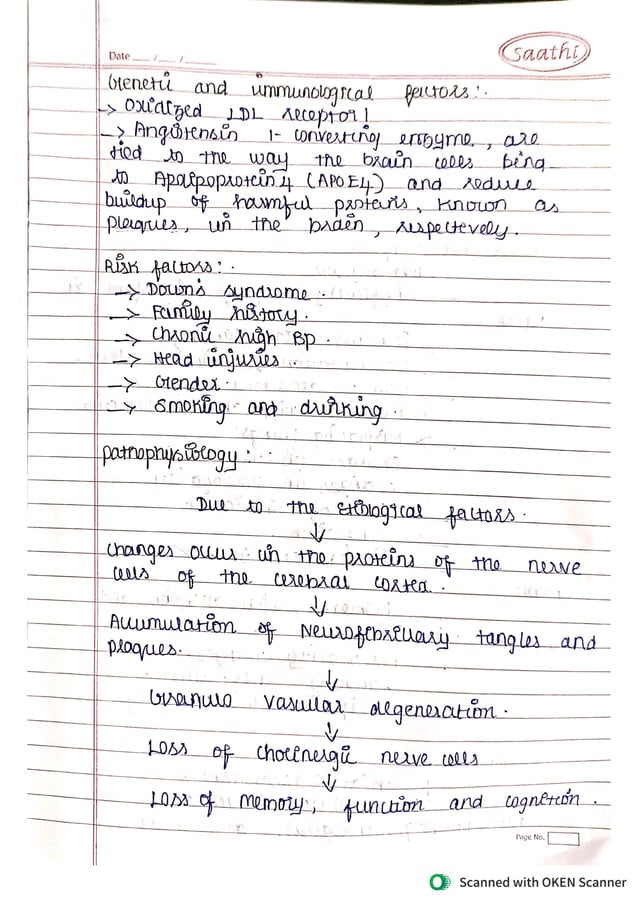 Date ___/___/______
Saathi
Genetic and immunological factors:.
-> Oxidized LDL receptor 1
-> Angiotensin 1- converting enzyme, are
tied to the way the brain cells bing
to Apolpoprotein 4 (APOE4) and reduce
buildup of harmful proteins, known as
plaques, in the brain, respectevely.
Risk factors:.
-> Down's syndrome.
-> Family history.
-> Chronic high BP.
-> Head injuries.
-> Gender.
-> Smoking and drinking.
Pathophysiology:.
Due to the etiological factors.
↓
Changes occur in the proteins of the nerve
cells of the cerebral cortex.
↓
Accumulation of Neurofibrillary tangles and
plaques.
↓
Granulo vascular degeneration.
↓
Loss of cholinergic nerve cells
↓
Loss of memory, function and cognition.
Page No.
Scanned with OKEN Scanner